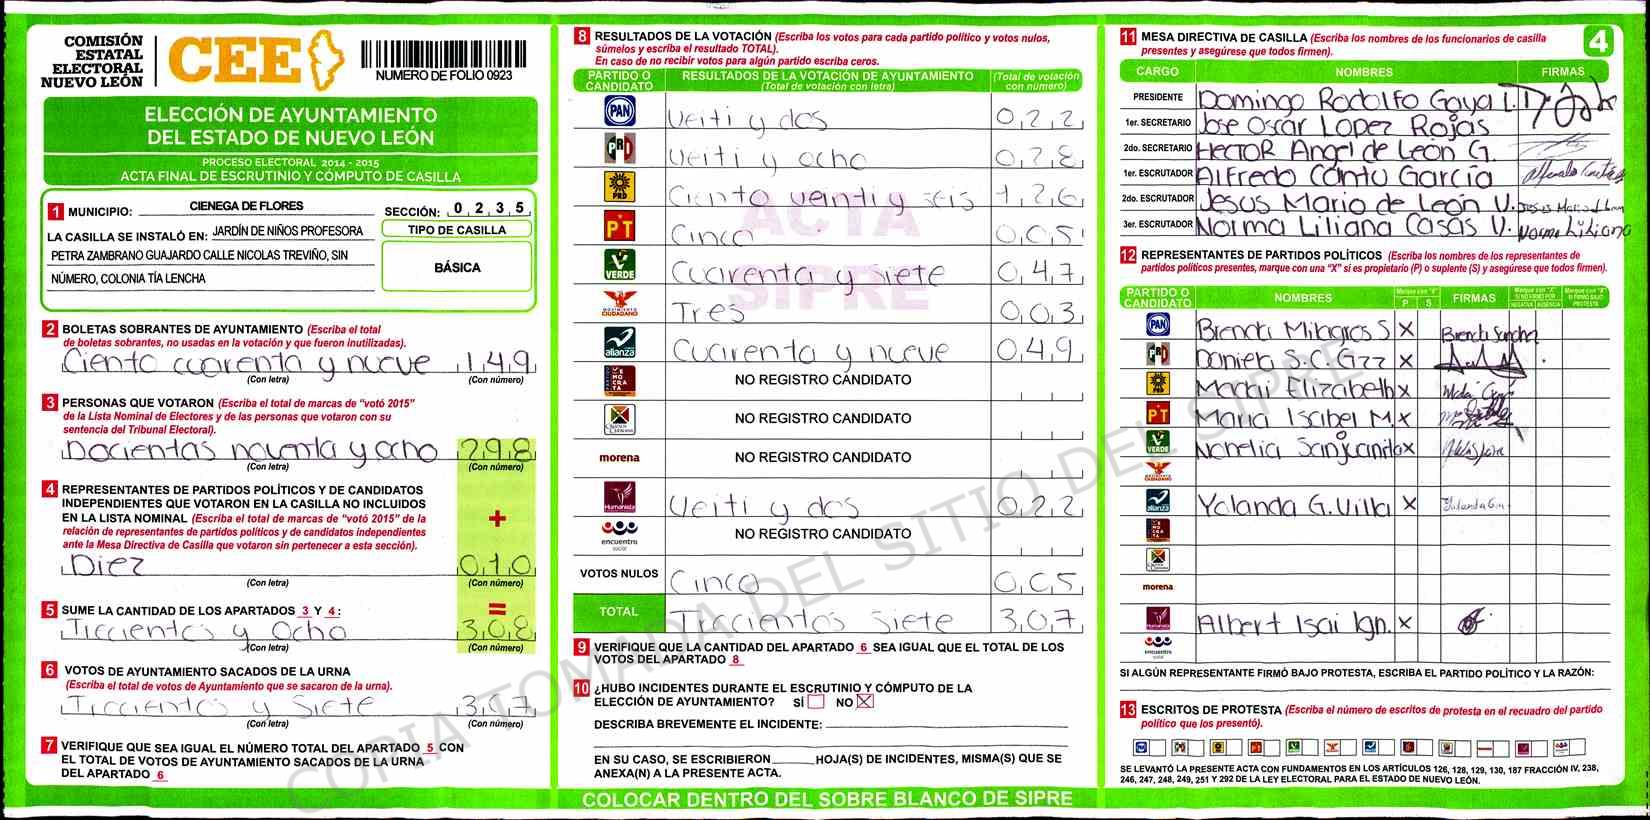 COMISIÓN
ESTATAL
ELECTORAL
NUEVO LEÓN
CEE
NUMERO DE FOLIO 0923
ELECCIÓN DE AYUNTAMIENTO
DEL ESTADO DE NUEVO LEÓN
PROCESO ELECTORAL 2014 - 2015
ACTA FINAL DE ESCRUTINIO Y CÓMPUTO DE CASILLA
1 MUNICIPIO: CIENEGA DE FLORES SECCIÓN: 0 2 3 5
LA CASILLA SE INSTALÓ EN: JARDÍN DE NIÑOS PROFESORA
PETRA ZAMBRANO GUAJARDO CALLE NICOLAS TREVIÑO, SIN
NÚMERO, COLONIA TÍA LENCHA
TIPO DE CASILLA
BÁSICA
2 BOLETAS SOBRANTES DE AYUNTAMIENTO (Escriba el total
de boletas sobrantes, no usadas en la votación y que fueron inutilizadas).
Ciento cuarenta y nueve 149
(Con letra) (Con número)
3 PERSONAS QUE VOTARON (Escriba el total de marcas de "votó 2015"
de la Lista Nominal de Electores y de las personas que votaron con su
sentencia del Tribunal Electoral).
Docientas noventa y ocho 298
(Con letra) (Con número)
4 REPRESENTANTES DE PARTIDOS POLÍTICOS Y DE CANDIDATOS
INDEPENDIENTES QUE VOTARON EN LA CASILLA NO INCLUIDOS
EN LA LISTA NOMINAL (Escriba el total de marcas de "votó 2015" de la
relación de representantes de partidos políticos y de candidatos independientes
ante la Mesa Directiva de Casilla que votaron sin pertenecer a esta sección).
+
Diez 010
(Con letra) (Con número)
5 SUME LA CANTIDAD DE LOS APARTADOS 3 Y 4:
=
Trecientos y Ocho 308
(Con letra) (Con número)
6 VOTOS DE AYUNTAMIENTO SACADOS DE LA URNA
(Escriba el total de votos de Ayuntamiento que se sacaron de la urna).
Trecientos y Siete 307
(Con letra) (Con número)
7 VERIFIQUE QUE SEA IGUAL EL NÚMERO TOTAL DEL APARTADO 5 CON
EL TOTAL DE VOTOS DE AYUNTAMIENTO SACADOS DE LA URNA
DEL APARTADO 6
8 RESULTADOS DE LA VOTACIÓN (Escriba los votos para cada partido político y votos nulos,
súmelos y escriba el resultado TOTAL).
En caso de no recibir votos para algún partido escriba ceros.
PARTIDO O CANDIDATO RESULTADOS DE LA VOTACIÓN DE AYUNTAMIENTO (Total de votación con letra) (Total de votación con número)
PAN Veiti y dos 022
PRD Veiti y ocho 028
PRD Ciento veinti y seis 126
PT Cinco 005
VERDE Cuarenta y Siete 047
MOVIMIENTO CIUDADANO Tres 003
alianza Cuarenta y nueve 049
DEMOCRATA NO REGISTRO CANDIDATO
NO REGISTRO CANDIDATO
morena NO REGISTRO CANDIDATO
Humanista Veiti y dos 022
encuentro social NO REGISTRO CANDIDATO
VOTOS NULOS Cinco 005
TOTAL Trecientos Siete 307
ACTA
SIPRE
9 VERIFIQUE QUE LA CANTIDAD DEL APARTADO 6 SEA IGUAL QUE EL TOTAL DE LOS
VOTOS DEL APARTADO 8
10 ¿HUBO INCIDENTES DURANTE EL ESCRUTINIO Y CÓMPUTO DE LA
ELECCIÓN DE AYUNTAMIENTO? SÍ NO X
DESCRIBA BREVEMENTE EL INCIDENTE:
EN SU CASO, SE ESCRIBIERON HOJA(S) DE INCIDENTES, MISMA(S) QUE SE
ANEXA(N) A LA PRESENTE ACTA.
COLOCAR DENTRO DEL SOBRE BLANCO DE SIPRE
11 MESA DIRECTIVA DE CASILLA (Escriba los nombres de los funcionarios de casilla
presentes y asegúrese que todos firmen).
4
CARGO NOMBRES FIRMAS
PRESIDENTE Domingo Rodolfo Gaya L.
1er. SECRETARIO Jose Oscar Lopez Rojas
2do. SECRETARIO HECTOR Angel de León G.
1er. ESCRUTADOR Alfredo Cantu García
2do. ESCRUTADOR Jesus Mario de León V.
3er. ESCRUTADOR Norma Liliana Casas V. Norma Liliana
12 REPRESENTANTES DE PARTIDOS POLÍTICOS (Escriba los nombres de los representantes de
partidos políticos presentes, marque con una "X" si es propietario (P) o suplente (S) y asegúrese que todos firmen).
PARTIDO O CANDIDATO NOMBRES Marque con "X" P S FIRMAS Marque con "X" SI NO FIRMÓ POR NEGATIVA AUSENCIA Marque con "X" SI FIRMÓ BAJO PROTESTA
PAN Brenda Milagros S X Brenda Sanchez
PRD Daniela S.C. Gzz X
PRD Madai Elizabeth X
PT Maria Isabel M. X
VERDE Norelia Sanjuanita X
MOVIMIENTO CIUDADANO
alianza Yolanda G. Villa X
morena
Humanista Albert Isai Ign. X
encuentro social
SI ALGÚN REPRESENTANTE FIRMÓ BAJO PROTESTA, ESCRIBA EL PARTIDO POLÍTICO Y LA RAZÓN:
13 ESCRITOS DE PROTESTA (Escriba el número de escritos de protesta en el recuadro del partido
político que los presentó).
SE LEVANTÓ LA PRESENTE ACTA CON FUNDAMENTOS EN LOS ARTÍCULOS 126, 128, 129, 130, 187 FRACCIÓN IV, 238,
246, 247, 248, 249, 251 Y 292 DE LA LEY ELECTORAL PARA EL ESTADO DE NUEVO LEÓN.
COPIA TOMADA DEL SITIO DEL SIPRE